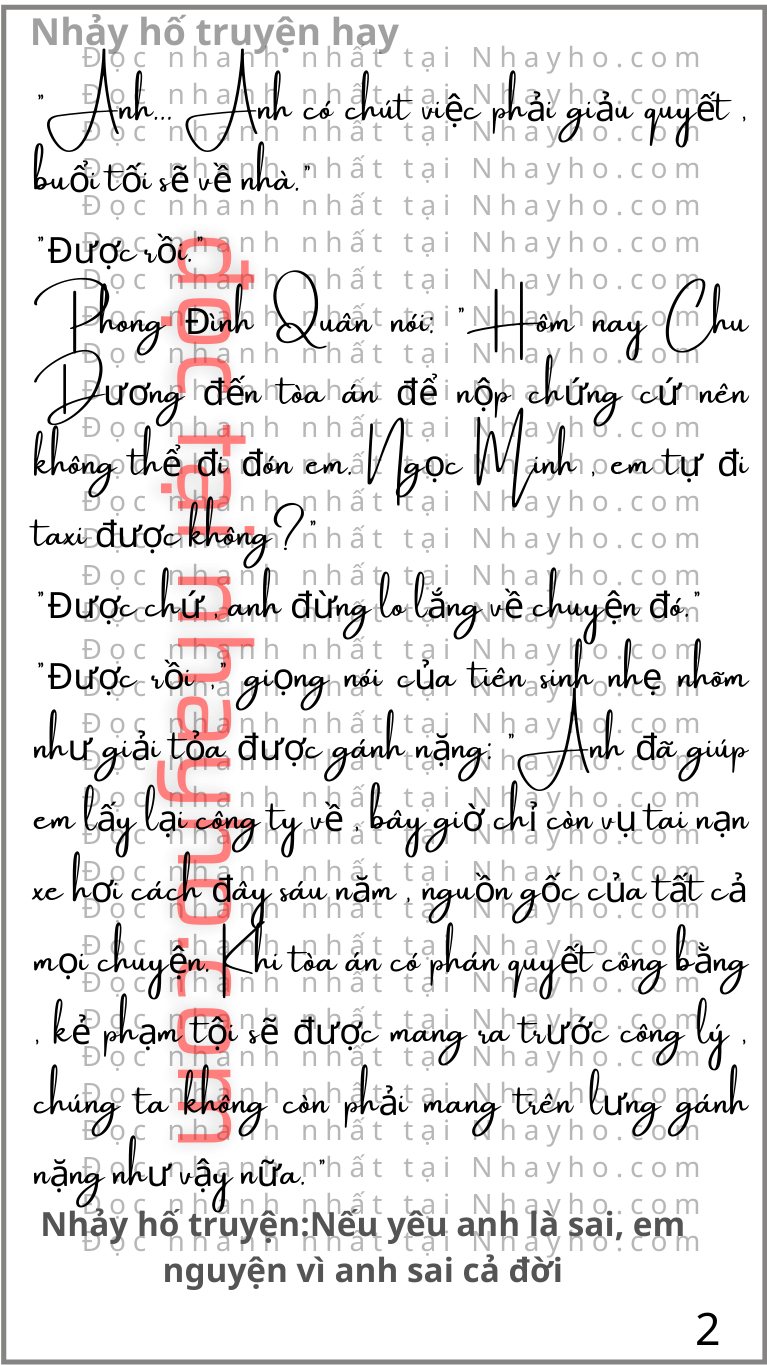 Nhảy hố truyện hay
" Anh... Anh có chút việc phải giảu quyết ,
buổi tối sẽ về nhà."
"Được rồi."
Phong Đình Quân nói: "Hôm nay Chu
Dương đến tòa án để nộp chứng cứ nên
không thể đi đón em. Ngọc Minh , em tự đi
taxi được không?"
"Được chứ , anh đừng lo lắng về chuyện đó."
"Được rồi ," giọng nói của tiên sinh nhẹ nhõm
như giải tỏa được gánh nặng: " Anh đã giúp
em lấy lại công ty về , bây giờ chỉ còn vụ tai nạn
xe hơi cách đây sáu năm , nguồn gốc của tất cả
mọi chuyện. Khi tòa án có phán quyết công bằng
, kẻ phạm tội sẽ được mang ra trước công lý ,
chúng ta không còn phải mang trên lưng gánh
nặng như vậy nữa. "
Nhảy hố truyện:Nếu yêu anh là sai, em
nguyện vì anh sai cả đời
2
đọc tại nhayho.com
Đọc nhanh nhất tại Nhayho.com